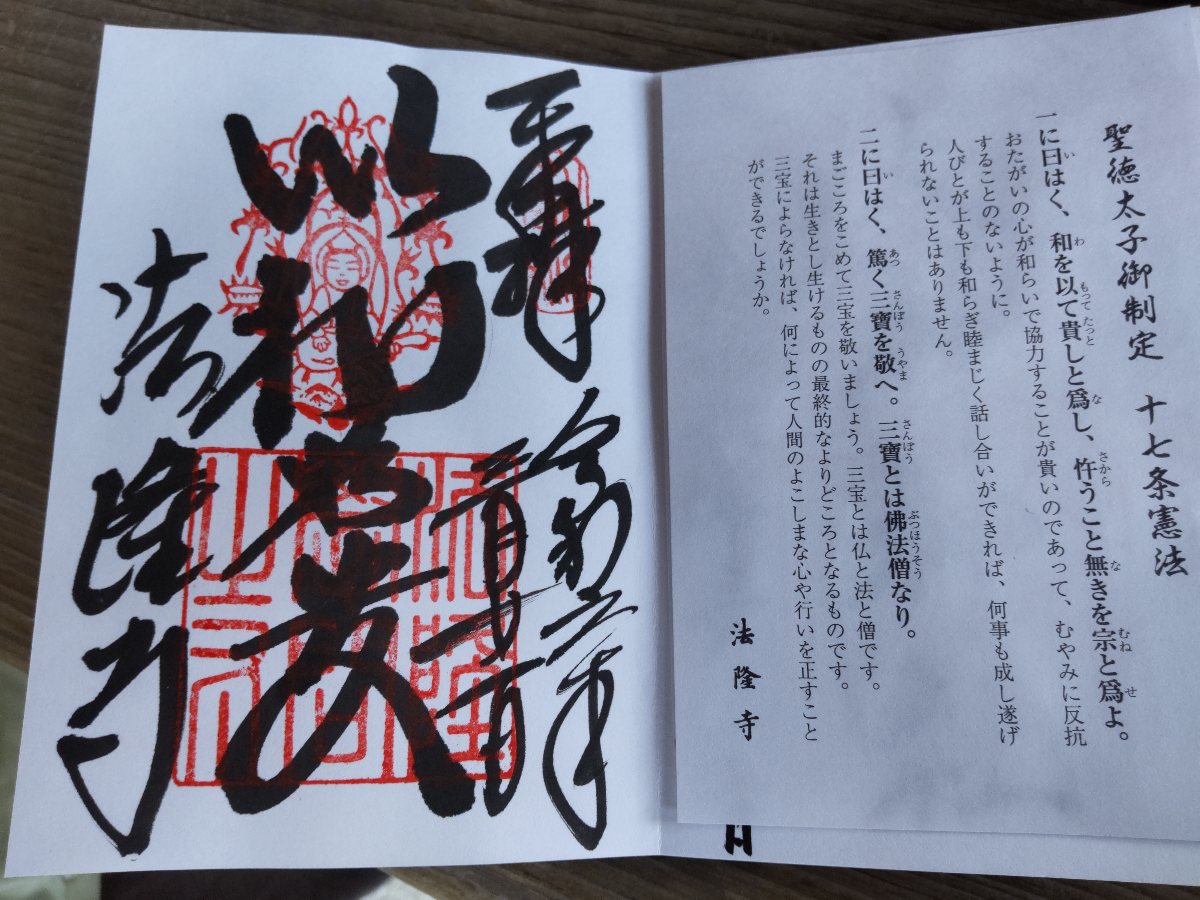 聖徳太子御制定　十七条憲法
一に曰はく、和を以て貴しと爲し、忤うこと無きを宗と爲よ。
おたがいの心が和らいで協力することが貴いのであって、むやみに反抗
することのないように。
人びとが上も下も和らぎ睦まじく話し合いができれば、何事も成し遂げ
られないことはありません。
二に曰はく、篤く三寶を敬へ。三寶とは佛法僧なり。
まごころをこめて三宝を敬いましょう。三宝とは仏と法と僧です。
それは生きとし生けるものの最終的なよりどころとなるものです。
三宝によらなければ、何によって人間のよこしまな心や行いを正すこと
ができるでしょうか。
法隆寺
奉拝　令和六年
二月廿一日
以和為貴
法隆寺